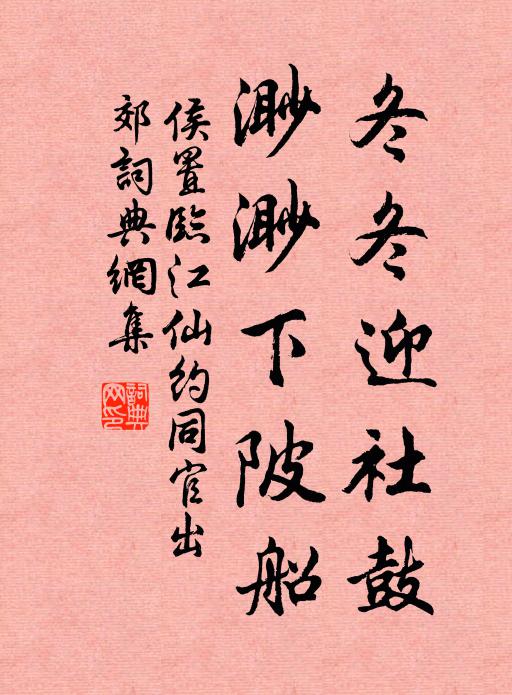 冬冬迎社鼓
渺渺下陂船
侯置臨江仙約同官出
郊詞典網集
詞典網印